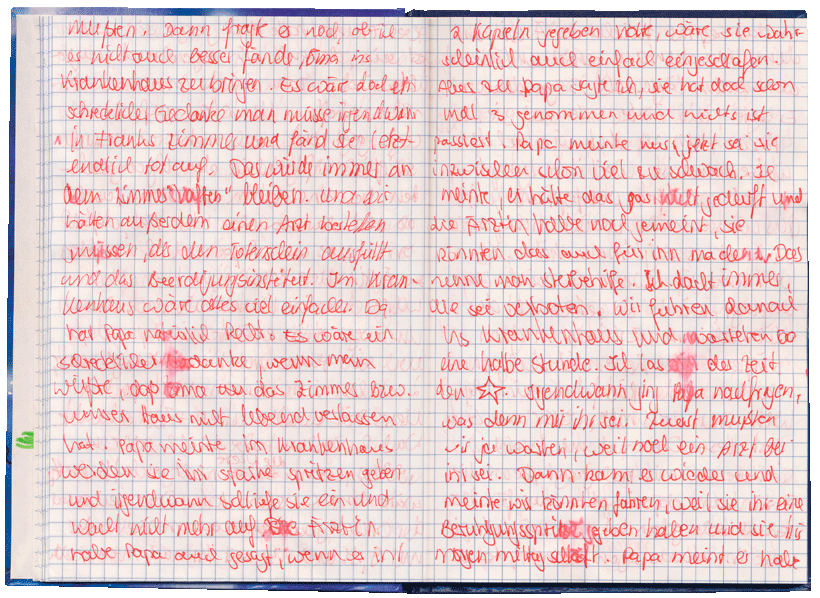 mußten. Dann fragte er noch, ob ich
es nicht auch besser fände, Oma ins
Krankenhaus zu bringen. Es wäre doch ein
schrecklicher Gedanke man müsse irgendwann
in Franks Zimmer und fänd sie letzt-
endlich tot auf. Das würde immer an
dem Zimmer "haften" bleiben. Und wir
hätten außerdem einen Arzt bestellen
müssen, der den Totenschein ausfüllt
und das Beerdigungsinstitut. Im Kran-
kenhaus wäre alles viel einfacher. Da
hat Papa natürlich Recht. Es wäre ein
schrecklicher Gedanke, wenn man
wüßte, daß Oma das Zimmer bzw.
unser Haus nicht lebend verlassen
hat. Papa meinte im Krankenhaus
werden sie ihr starke Spritzen geben
und irgendwann schliefe sie ein und
wacht nicht mehr auf. Die Ärztin
habe Papa auch gesagt, wenn er ihr
2 Kapseln gegeben hätte, wäre sie wahr-
scheinlich auch einfach eingeschlafen.
Aber zu Papa sagte ich, sie hat doch schon
mal 3 genommen und nichts ist
passiert. Papa meinte nur, jetzt sei sie
inzwischen schon viel zu schwach. Ich
meinte, er hätte das gar nicht gedurft und
die Ärztin habe noch gemeint, sie
könnten das auch für ihn machen. Das
nenne man Sterbehilfe. Ich dacht immer,
die sei verboten. Wir fuhren danach
ins Krankenhaus und warteten so
eine halbe Stunde. Ich las in der Zeit
den ☆. Irgendwann ging Papa nachfragen,
was denn mit ihr sei. Zuerst mußten
wir ja warten, weil noch ein Arzt bei
ihr sei. Dann kam er wieder und
meinte wir könnten fahren, weil sie ihr eine
Beruhigungsspritze gegeben haben und sie bis
morgen mittag schläft. Papa meint er habe